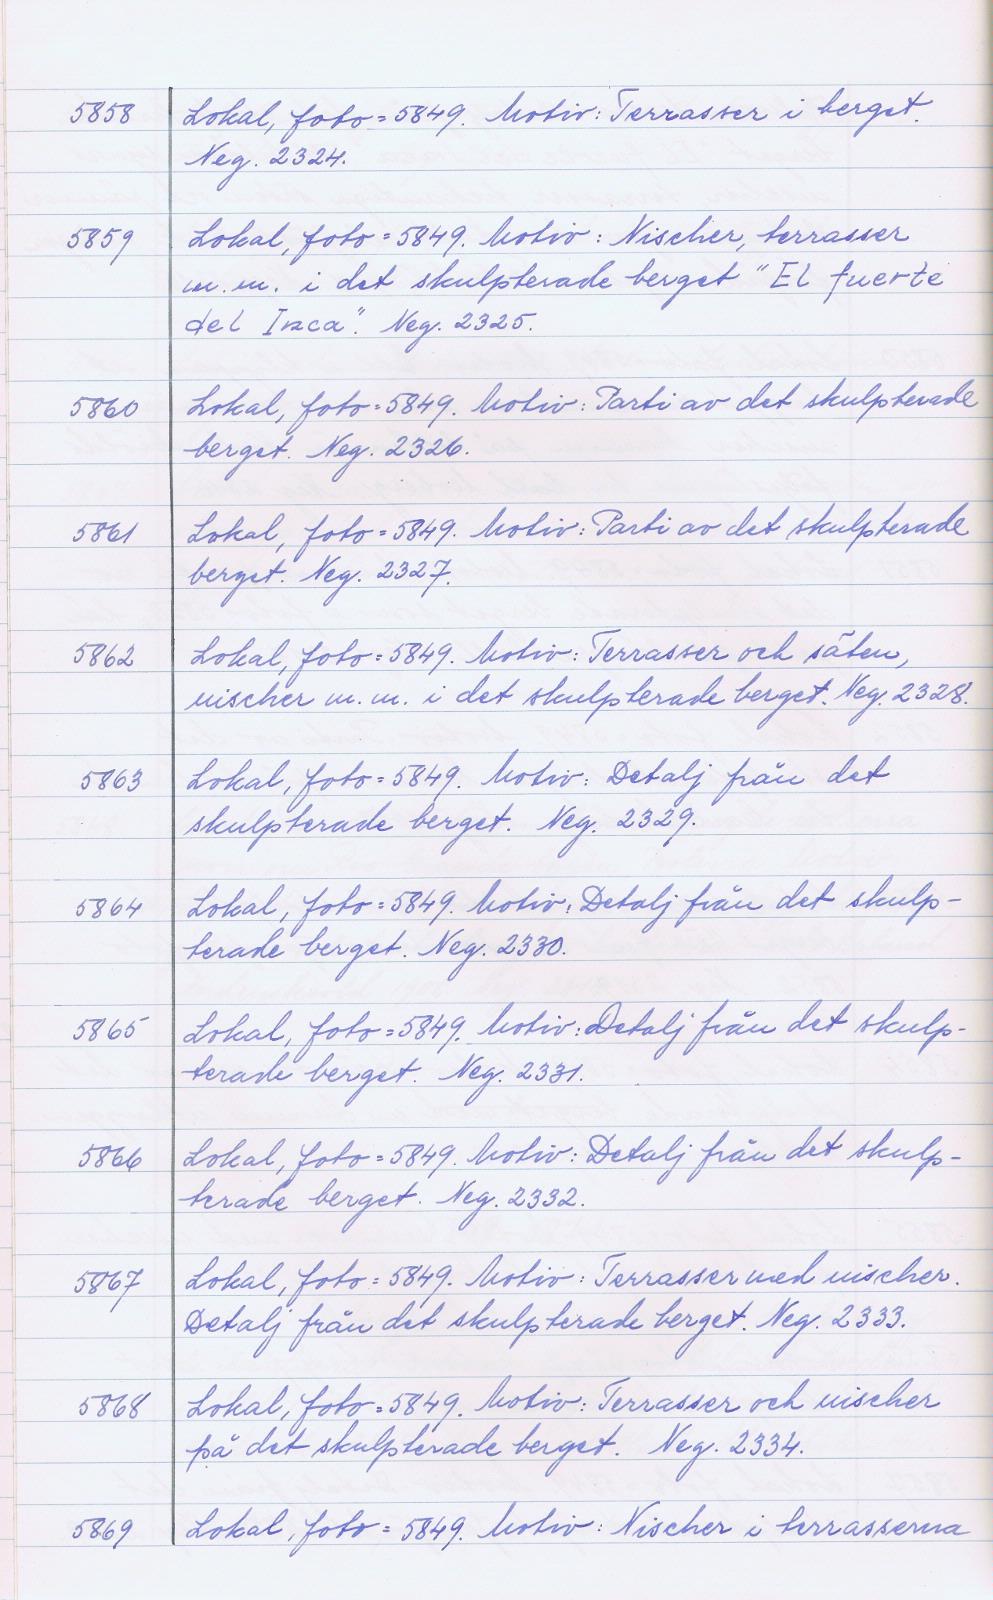 5858 Lokal, foto = 5849. Motiv: Terrasser i berget.
Neg. 2324.
5859 Lokal, foto = 5849. Motiv: Nischer, terrasser
m.m. i det skulpterade berget "El fuerte
del Inca". Neg. 2325.
5860 Lokal, foto = 5849. Motiv: Parti av det skulpterade
berget. Neg. 2326.
5861 Lokal, foto = 5849. Motiv: Parti av det skulpterade
berget. Neg. 2327.
5862 Lokal, foto = 5849. Motiv: Terrasser och säten,
nischer m.m. i det skulpterade berget. Neg. 2328.
5863 Lokal, foto = 5849. Motiv: Detalj från det
skulpterade berget. Neg. 2329.
5864 Lokal, foto = 5849. Motiv: Detalj från det skulp-
terade berget. Neg. 2330.
5865 Lokal, foto = 5849. Motiv: Detalj från det skulp-
terade berget. Neg. 2331.
5866 Lokal, foto = 5849. Motiv: Detalj från det skulp-
terade berget. Neg. 2332.
5867 Lokal, foto = 5849. Motiv: Terrasser med nischer.
Detalj från det skulpterade berget. Neg. 2333.
5868 Lokal, foto = 5849. Motiv: Terrasser och nischer
på det skulpterade berget. Neg. 2334.
5869 Lokal, foto = 5849. Motiv: Nischer i terrasserna